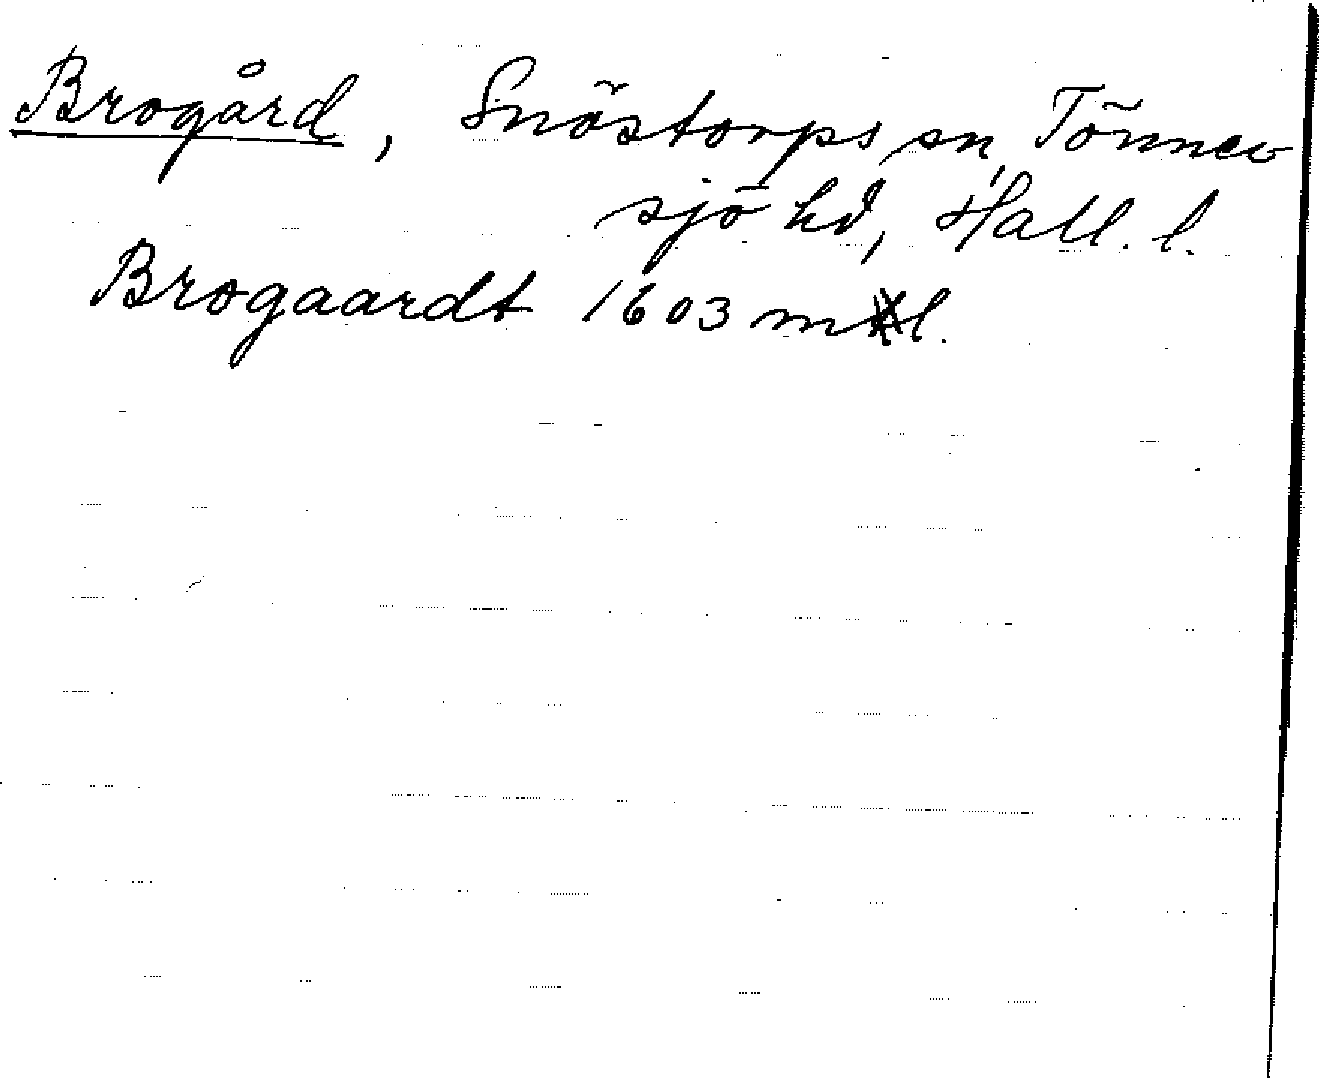 Brogård, Snöstorps sn, Tönner
sjö hd, Hall. l.
Brogaardt 1603 ml.